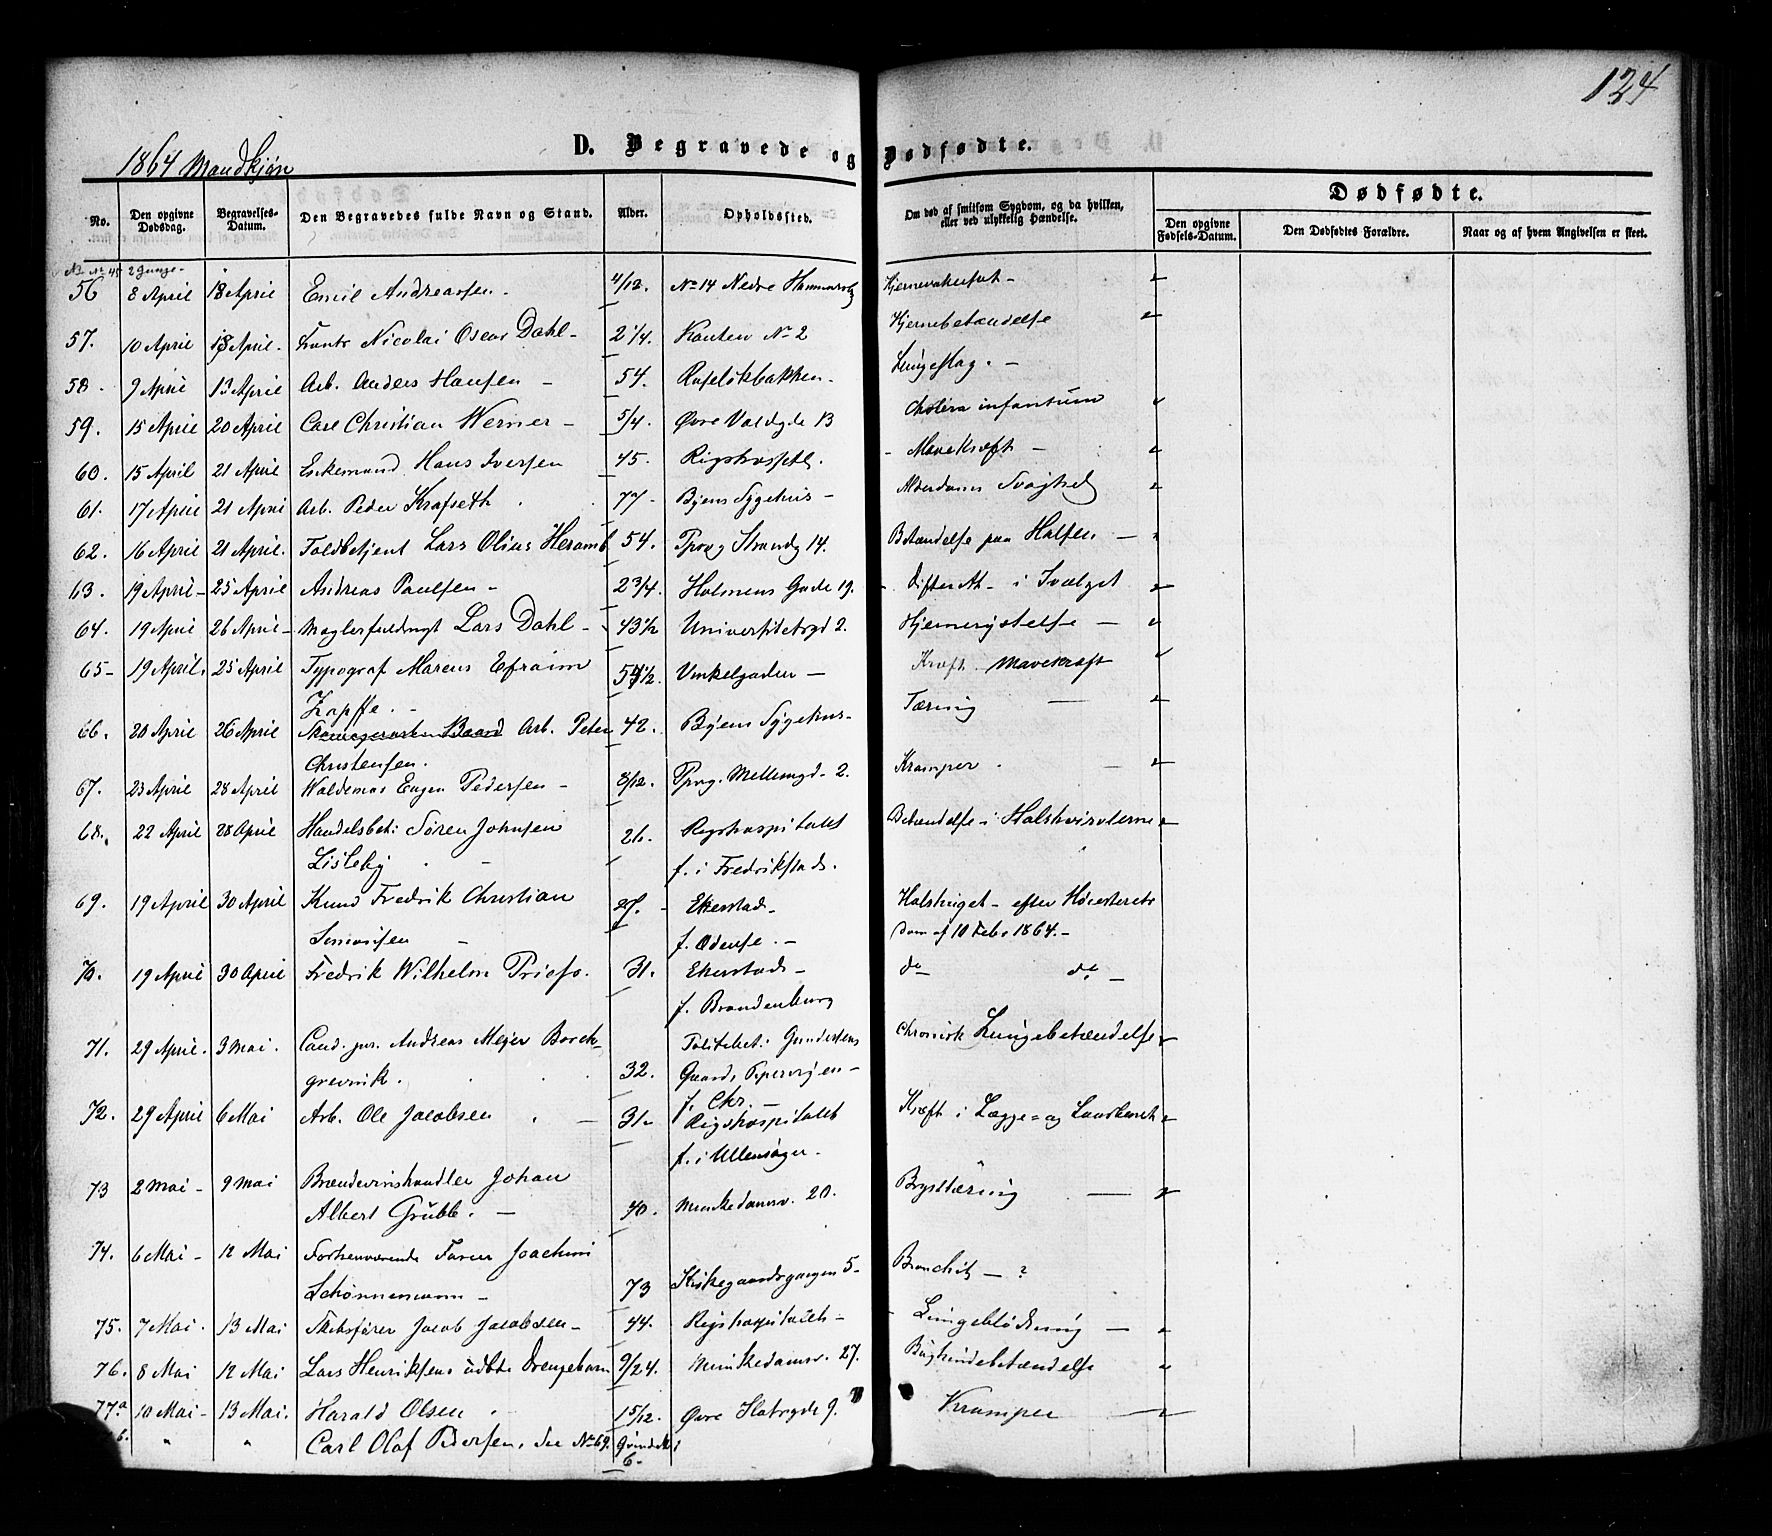 124
D. Begravede og Dødfødte.
1864 Mandkjøn
No. Den opgivne Dødsdag. Begravelses-Datum. Den Begravedes fulde Navn og Stand. Alder. Opholdssted. Om død af smitsom Sygdom, og da hvilken, eller ved ulykkelig Hændelse.
Dødfødte.
Den opgivne Fødsels-Datum. Den Dødfødtes Forældre. Naar og af hvem Angivelsen er skeet.
NB. No 45 2 Gange
56 8 April 18 April Emil Andreassen 4/12. No 14 Nedre
57. 10 April 13 April Nicolai Oscar Dahl 2 1/4. Kanten No 2 Hjernebetændelse
58. 9 April 13 April Arb. Anders Hansen 54. Lungeslag.
59. 15 April 20 April Carl Christian Werner 5/4. Øvre Voldgde 13 Cholera infantum
60. 15 April 21 April Enkemand Hans Iversen 45. Rigshospitl. Mavekræft
61. 17 April 21 April Arb. Peder 77 Byens Sygehus Alderdoms Svaghed
62. 16 April 21 April. Toldbetjent Lars Olius Heramb 54. Pipvg Strandg 14. Betændelse paa Halsen
63. 19 April 25 April Andreas Paulsen 2 3/4. Holmens Gade 19. Difterit i Svælget
64. 19 April 26 April Maglerfuldmgt Lars Dahl 43 1/2 Universitetsgd 2. Hjernerystelse
65 19 April. 25 April Typograf Marcus Efraim 54 1/2. Vinkelgaden Kræft. Mavekræft
Zapffe.
66. 20 April 26 April Arb. Peter 42. Byens Sygehus Tæring
Christensen.
67. 23 April 28 April Waldemar Eugen Pedersen 8/12. Pipvg. Mellemgd. 2. Kramper
68. 22 April 28 April Handelsbet: Søren Johnsen 26. Rigshospitalet Betændelse i Halshvirvlerne
Lisleby f. i Fredrikstad.
69. 19 April 30 April Knud Fredrik Christian 27. Ekerstad Halshuget efter Høiesterets
Simonsen f. Odense. Dom af 10 Feb. 1864.
70. 19 April 30 April Fredrik Wilhelm Priess. 31. Ekerstad do do
f. Brandenburg
71. 29 April. 3 Mai. Cand. jur. Andreas Mejer Borch- Politibet: Gundersens Chronisk Lungebetændelse
grevink. 32. Gaard, Pipervigen
f. Chr.
72. 29 April 6 Mai Arb. Ole Jacobsen 31 Rigshospitalet Kræft i Lægge- og Laarbenet
f. i Ullensager.
73 2 Mai 9 Mai Brændevinshandler Johan Brysttæring
Albert Grübb. 40. Munkedamsv. 20.
74. 6 Mai 12 Mai Forhenværende Joachim Bronchit ?
Schönnemann 73 Kirkegaardsgangen 5
75. 7 Mai 13 Mai Skibsfører Jacob Jacobsen 44. Rigshospitalet Lungeblødning
76. 8 Mai 12 Mai Lars Henriksens udbte Drengebarn 9/24. Munkedamsv. 27. Bughindebetændelse
77a 10 Mai 13 Mai. Harald Olsen 15/12. Øvre Slotsgde 9. Kramper
b. " " Carl Olaf Pedersen, see No 69.
6